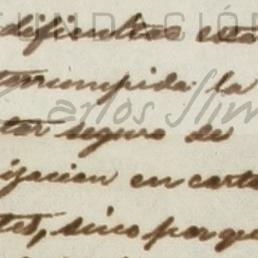 FUNDACIÓN
dificultad está
terrumpida la
Carlos Slim
tar seguro de
ización en carta
tes, sino porque